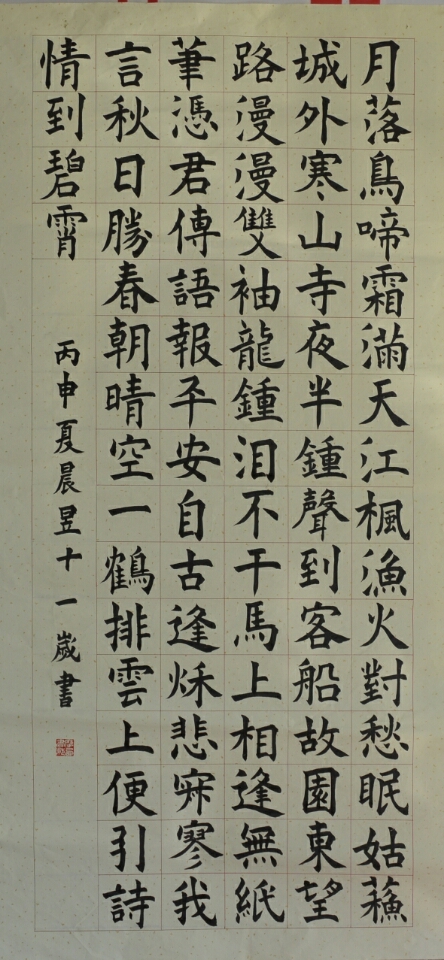 月落鳥啼霜滿天江楓漁火對愁眠姑蘓
城外寒山寺夜半鍾聲到客船故園東望
路漫漫雙袖龍鍾泪不干馬上相逢無紙
筆憑君傳語報平安自古逢秌悲寂寥我
言秋日勝春朝晴空一鶴排雲上便引詩
情到碧霄
丙申夏晨昱十一歲書